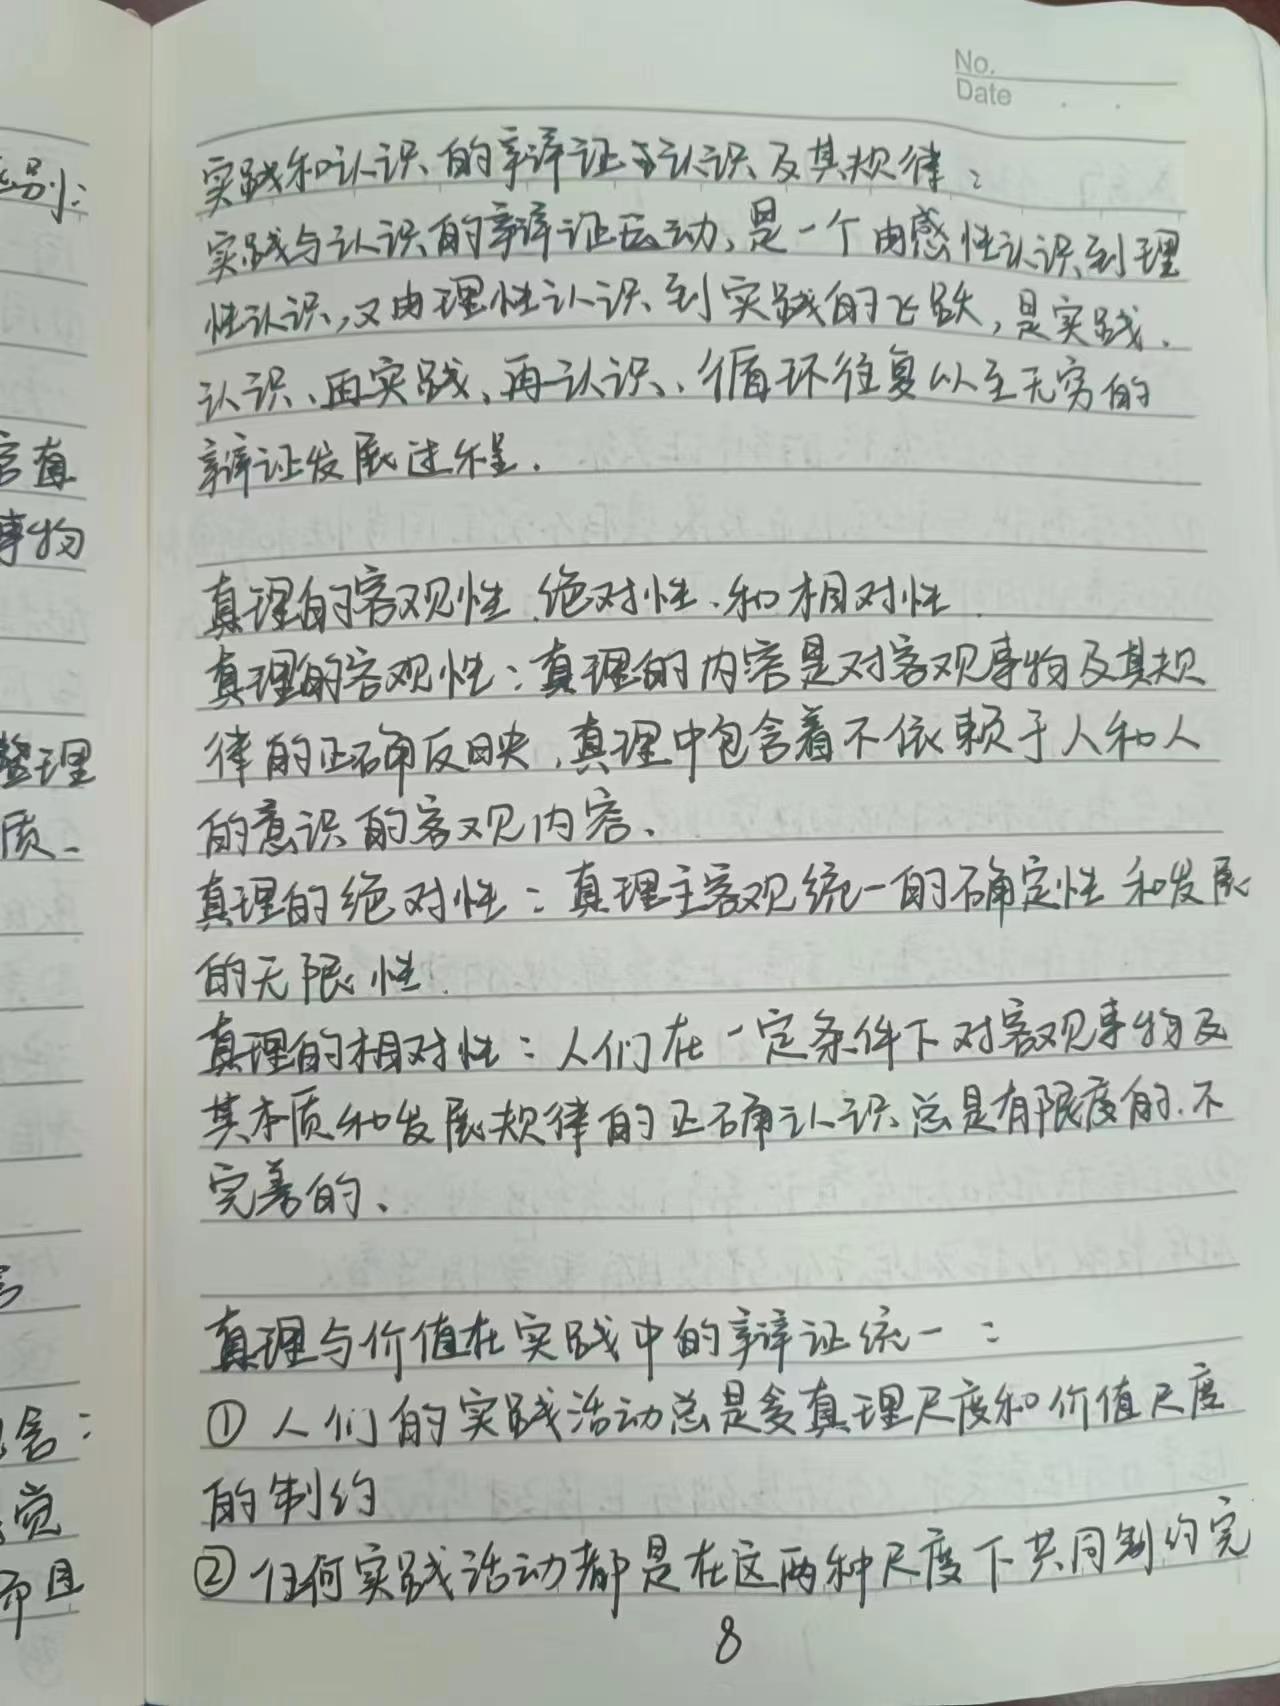 No.
Date
实践和认识的辩证认识及其规律：
实践与认识的辩证运动，是一个由感性认识到理
性认识，又由理性认识到实践的飞跃，是实践、
认识、再实践、再认识、循环往复以至无穷的
辩证发展过程.
真理的客观性、绝对性、和相对性.
真理的客观性：真理的内容是对客观事物及其规
律的正确反映，真理中包含着不依赖于人和人
的意识的客观内容、
真理的绝对性：真理主客观统一的确定性和发展
的无限性.
真理的相对性：人们在一定条件下对客观事物及
其本质和发展规律的正确认识总是有限度的、不
完善的、
真理与价值在实践中的辩证统一：
① 人们的实践活动总是受真理尺度和价值尺度
的制约
② 任何实践活动都是在这两种尺度下共同制约完
8
别：
事物
整理
质、
念：
觉
而且